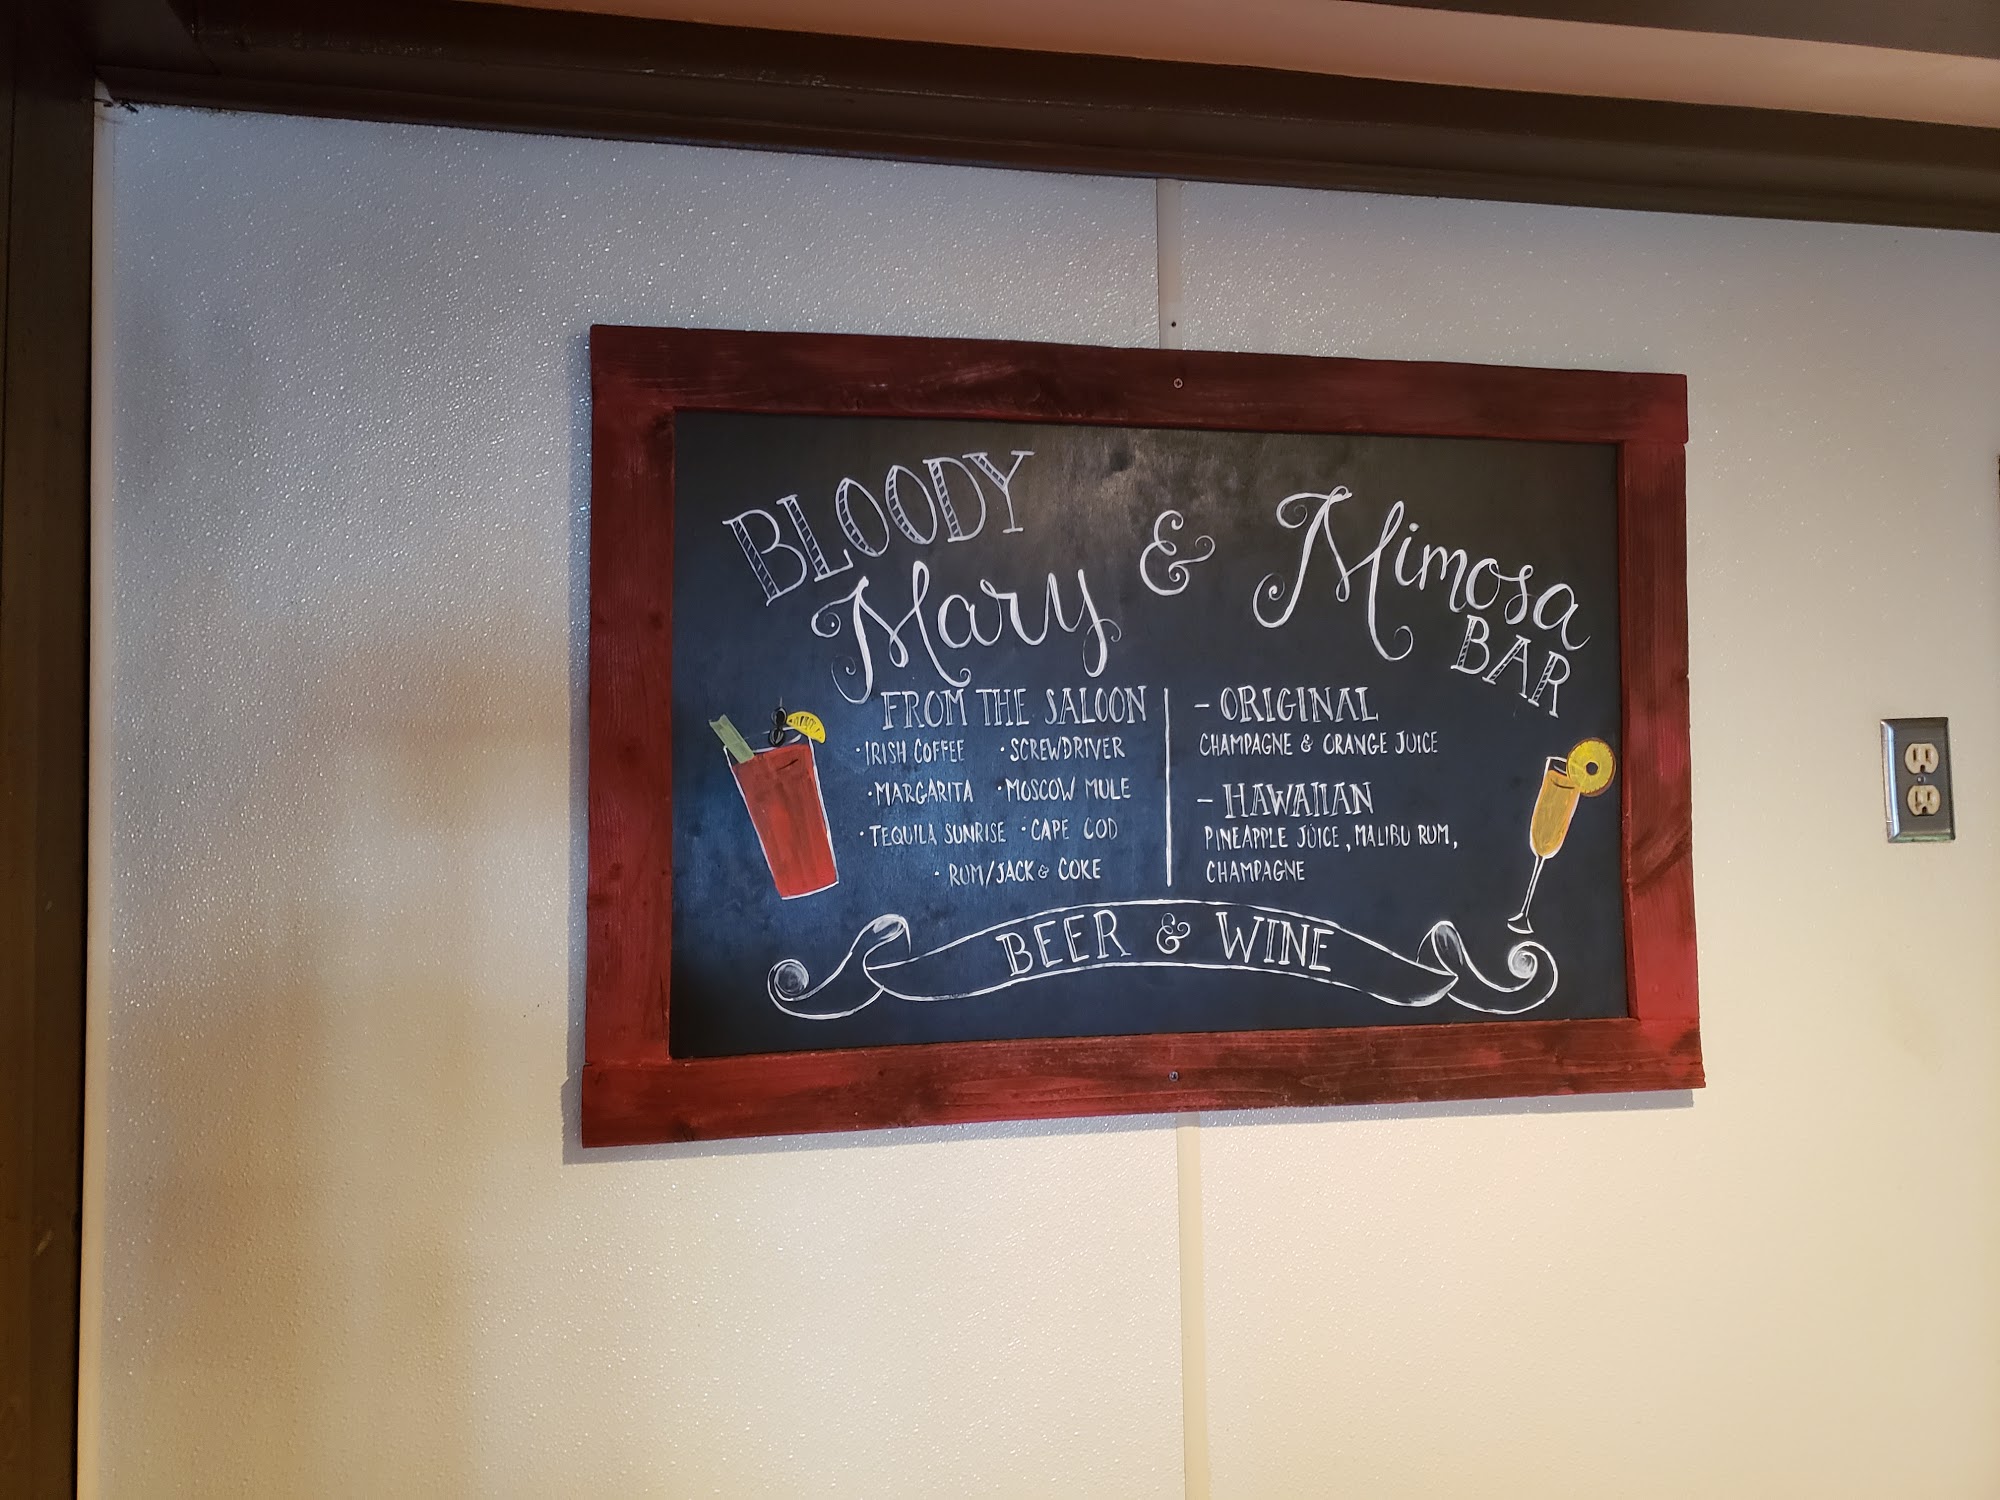 BLOODY
Mary & Mimosa
BAR
FROM THE SALOON
· IRISH COFFEE · SCREWDRIVER
· MARGARITA · MOSCOW MULE
· TEQUILA SUNRISE · CAPE COD
· RUM/JACK & COKE
- ORIGINAL
CHAMPAGNE & ORANGE JUICE
- HAWAIIAN
PINEAPPLE JUICE, MALIBU RUM,
CHAMPAGNE
BEER & WINE